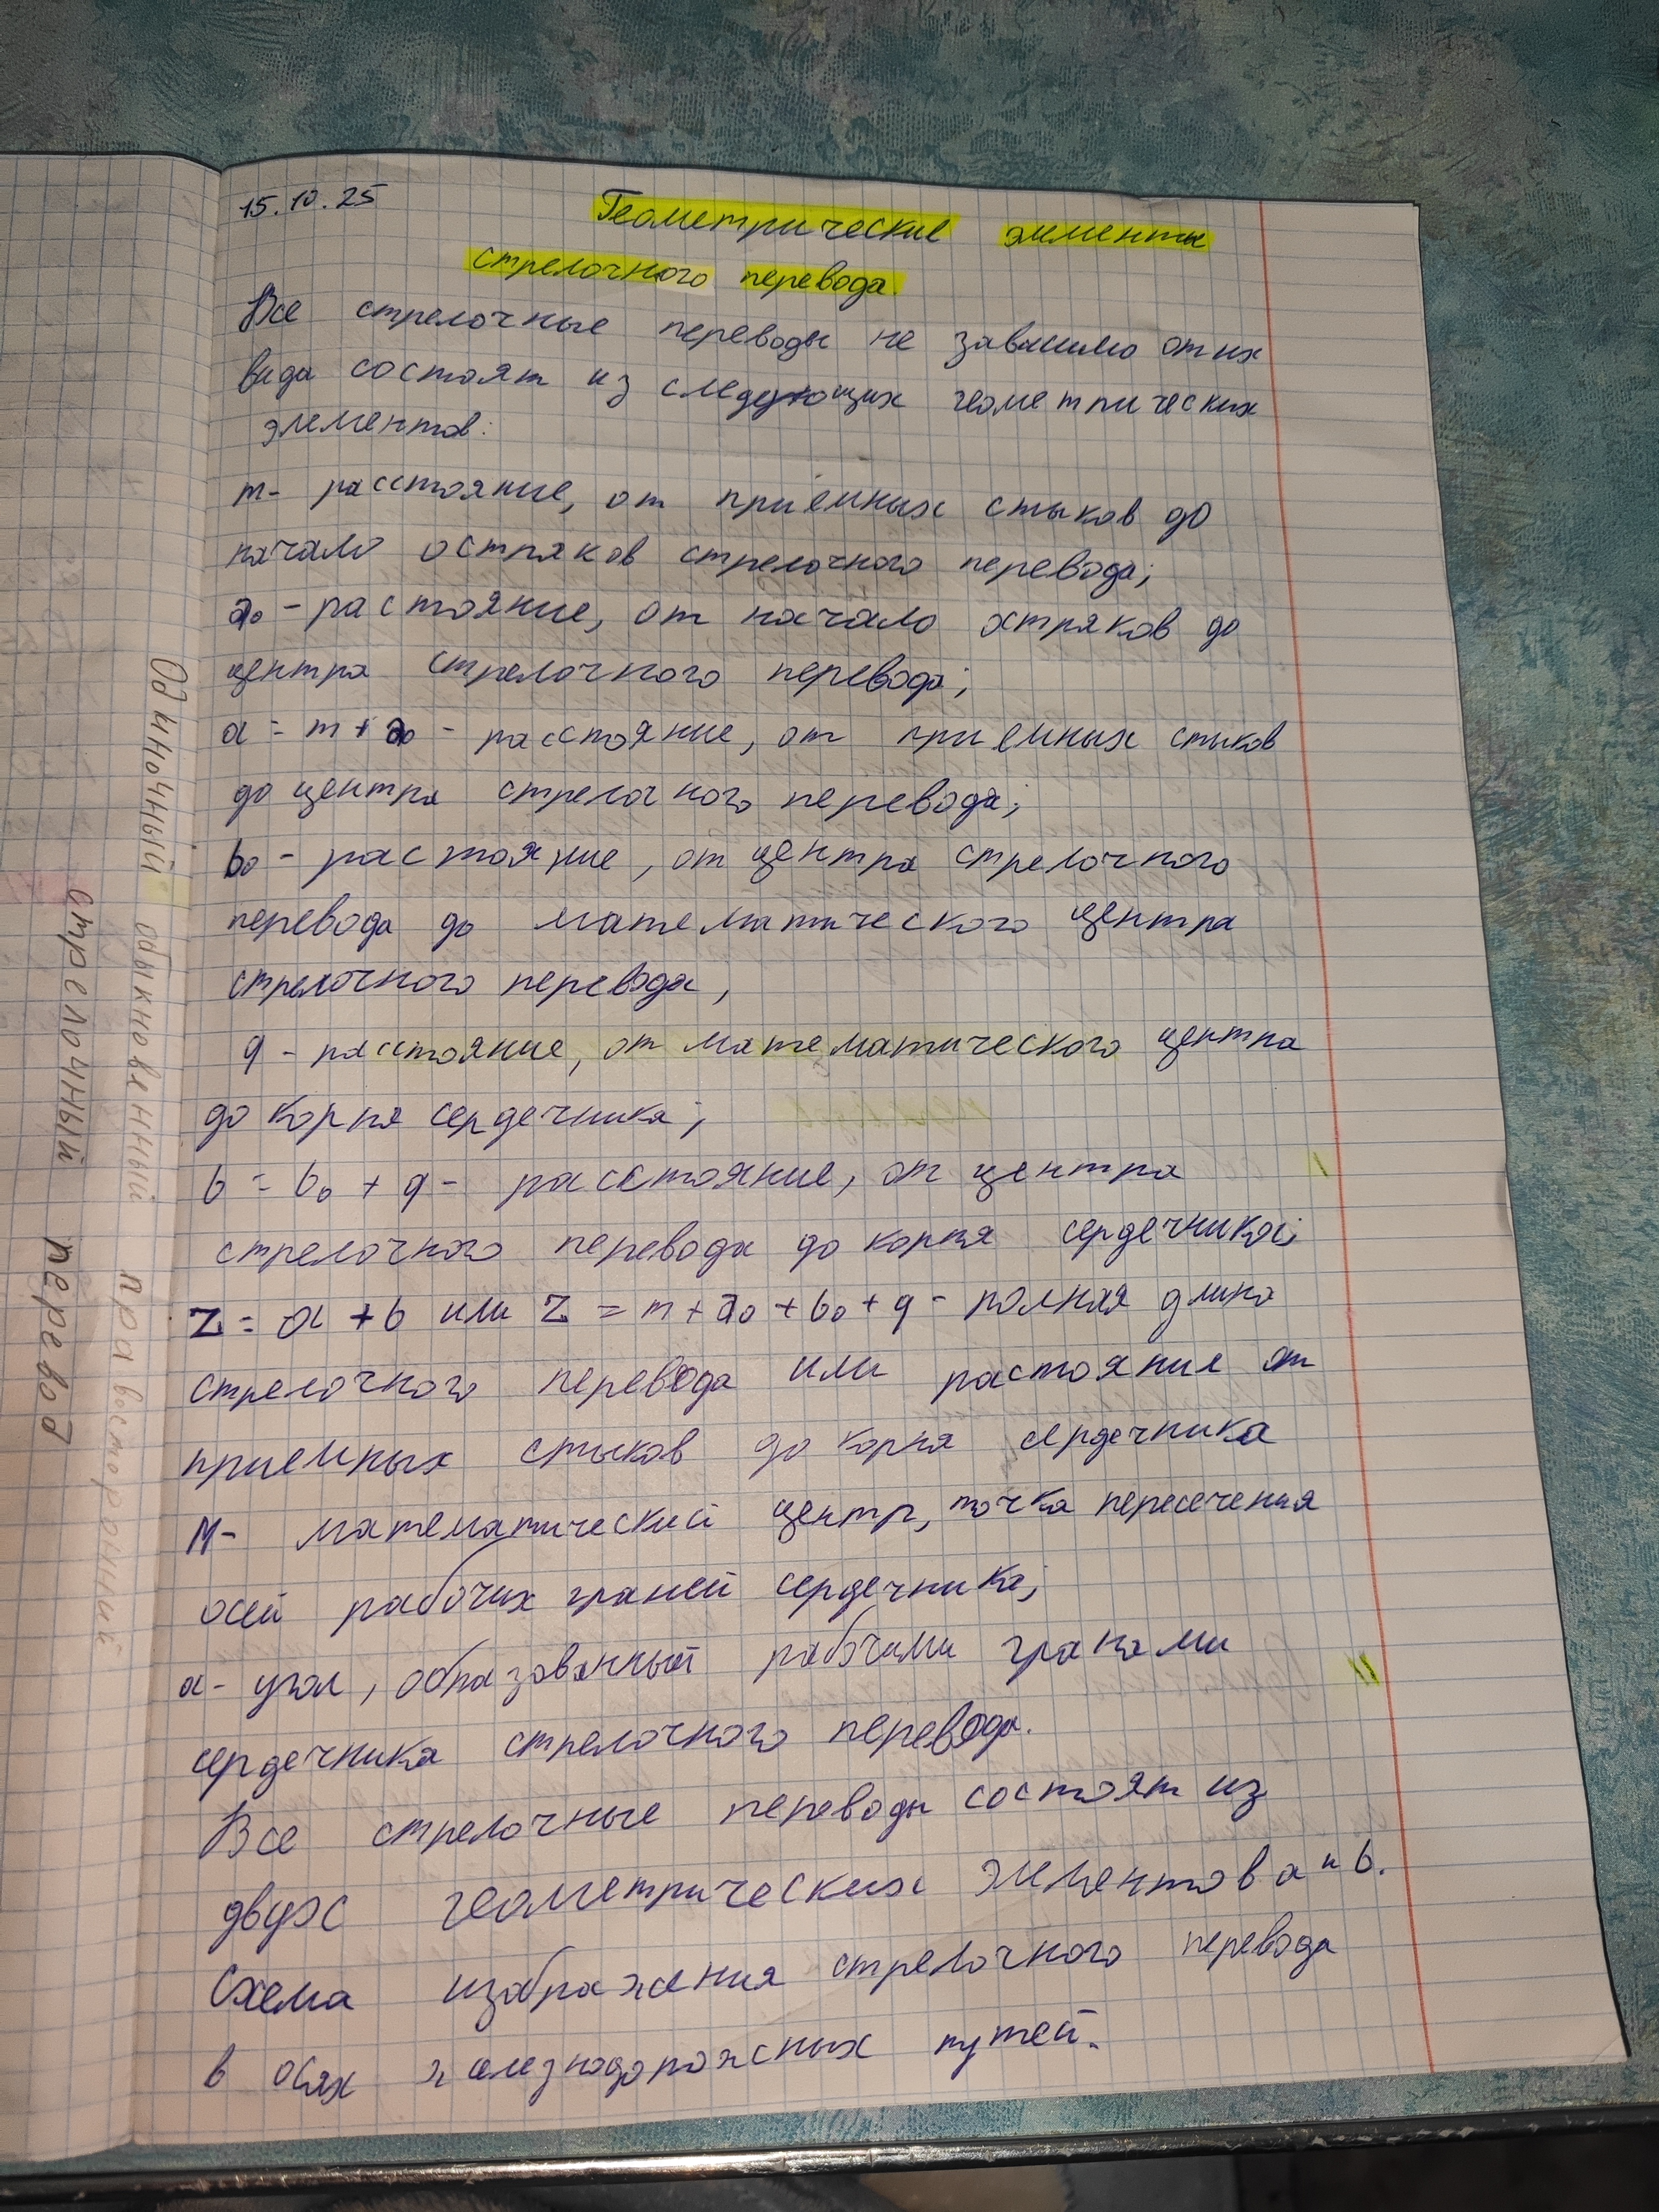 15.10.25
Геометрические элементы
стрелочного перевода.
Все стрелочные переводы не зависимо от их
вида состоят из следующих геометрических
элементов:
m- расстояние, от приёмных стыков до
начало остряков стрелочного перевода;
a₀ - растояние, от начало остряков до
центра стрелочного перевода;
a = m + a₀ - расстояние, от приемных стыков
до центра стрелочного перевода;
b₀ - растояние, от центра стрелочного
перевода до математического центра
стрелочного перевода,
q - расстояние, от математического центра
до корня сердечника;
b = b₀ + q - расстояние, от центра
стрелочного перевода до корня сердечника;
Z = a + b или Z = m + a₀ + b₀ + q - полная длина
стрелочного перевода или растояние от
приемных стыков до корня сердечника
М- математический центр, точка пересечения
осей рабочих граней сердечника;
α- угол, образованный рабочими гранями
сердечника стрелочного перевода.
Все стрелочные переводы состоят из
двух геометрических элементов a и b.
Схема изображения стрелочного перевода
в осях железнодорожных путей.
Одиночный обыкновенный правосторонний
стрелочный перевод